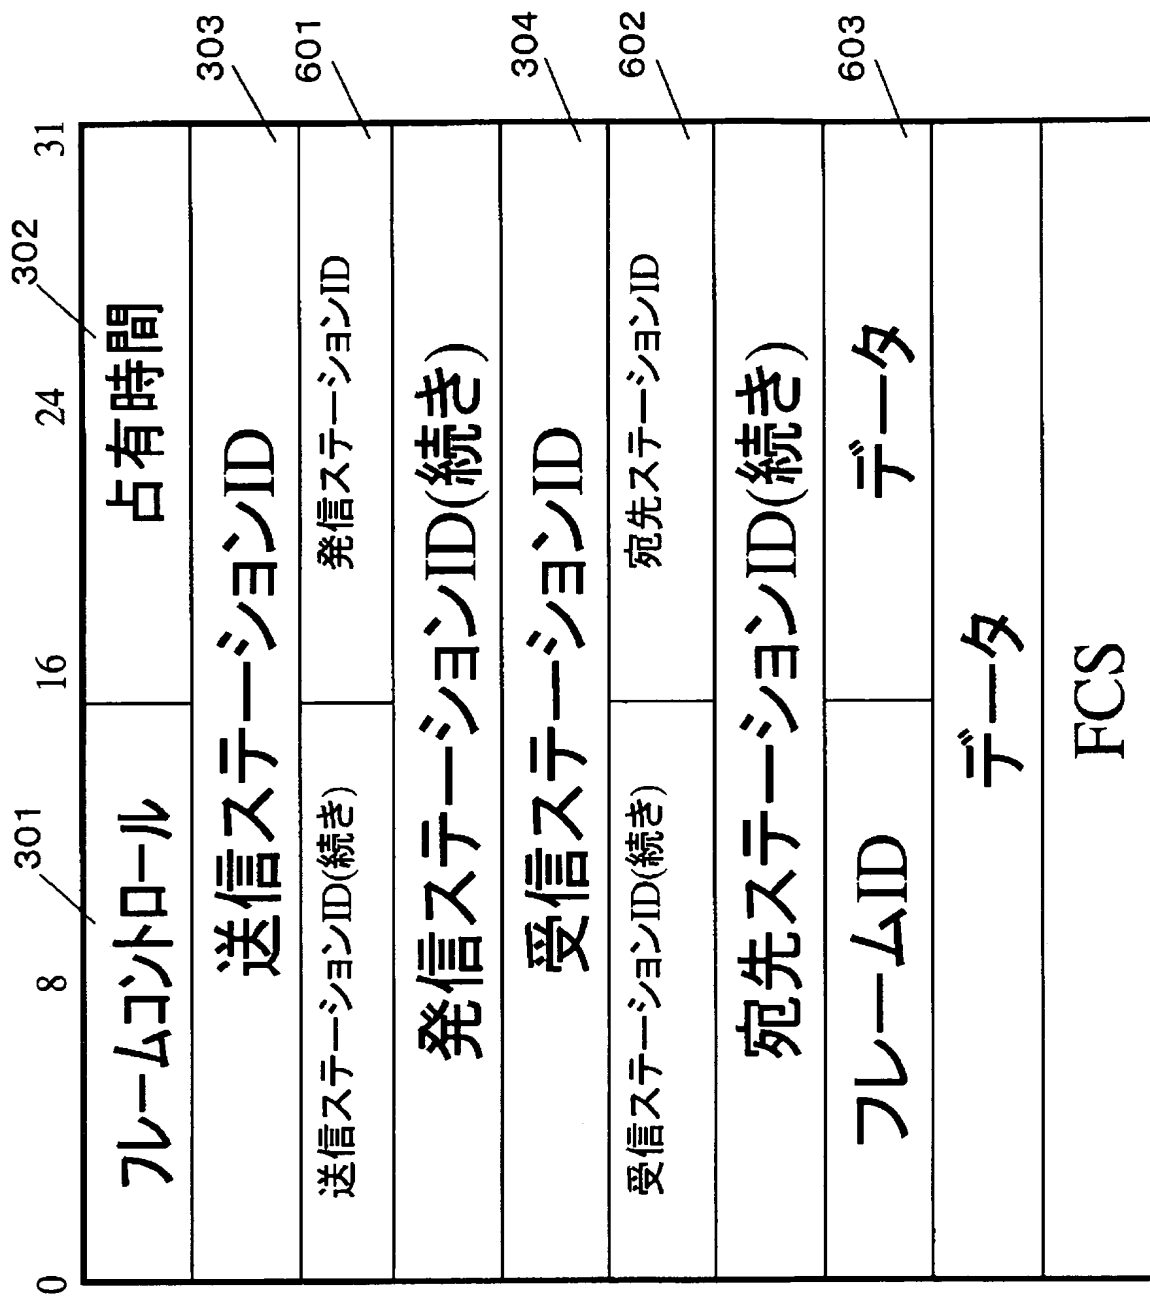 301
302
0 8 16 24 31
フレームコントロール 占有時間
送信ステーションID 303
送信ステーションID(続き) 発信ステーションID 601
発信ステーションID(続き)
受信ステーションID 304
受信ステーションID(続き) 宛先ステーションID 602
宛先ステーションID(続き)
フレームID データ 603
データ
FCS